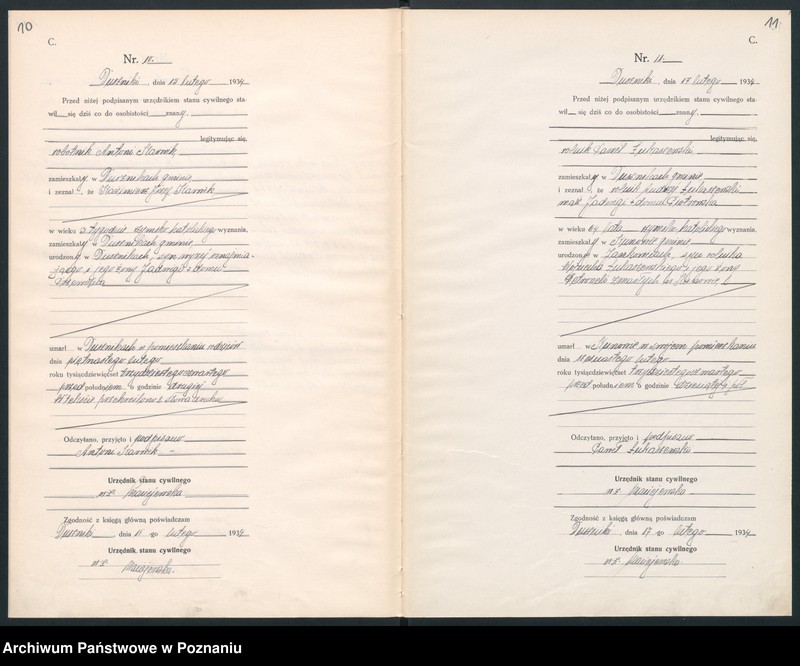 10
C.
Nr. 10.
Duszniki, dnia 15 lutego 1934
Przed niżej podpisanym urzędnikiem stanu cywilnego sta-
wił się dziś co do osobistości znany.
legitymując się,
robotnik Antoni
zamieszkały w Dusznikach gminie
i zeznał, że Kazimierz Jerzy
w wieku 3 tygodnie rzymsko katolickiego wyznania,
zamieszkały w Dusznikach gminie,
urodzony w Dusznikach, syn wyżej oznajmia-
jącego i jego żony Jadwigi z domu
umarł w Dusznikach w pomieszkaniu rodziców
dnia piętnastego lutego
roku tysiącdziewięćset trzydziestego czwartego
przed południem o godzinie drugiej
przekreślono
Odczytano, przyjęto i podpisano
Antoni
Urzędnik stanu cywilnego
w z. Maciejewska
Zgodność z księgą główną poświadczam
Duszniki, dnia -go lutego 1934
Urzędnik stanu cywilnego
w z. Maciejewska.
11
C.
Nr. 11.
Duszniki, dnia 17 lutego 1934
Przed niżej podpisanym urzędnikiem stanu cywilnego sta-
wił się dziś co do osobistości znany.
legitymując się,
rolnik Paweł Łukaszewski
zamieszkały w Dusznikach gminie,
i zeznał, że rolnik Łukaszewski
mąż Jadwigi z domu Piotrowska
w wieku 64 lata rzymsko katolickiego wyznania,
zamieszkały w gminie
urodzony w syn rolnika
Łukaszewskiego i jego żony
zmarłych
umarł w w swojem pomieszkaniu
dnia lutego
roku tysiącdziewięćset trzydziestego czwartego
przed południem o godzinie dziewiątej i pół
Odczytano, przyjęto i podpisano
Paweł Łukaszewski
Urzędnik stanu cywilnego
w z. Maciejewska
Zgodność z księgą główną poświadczam
Duszniki, dnia 17 -go lutego 1934
Urzędnik stanu cywilnego
w z. Maciejewska.
Archiwum Państwowe w Poznaniu